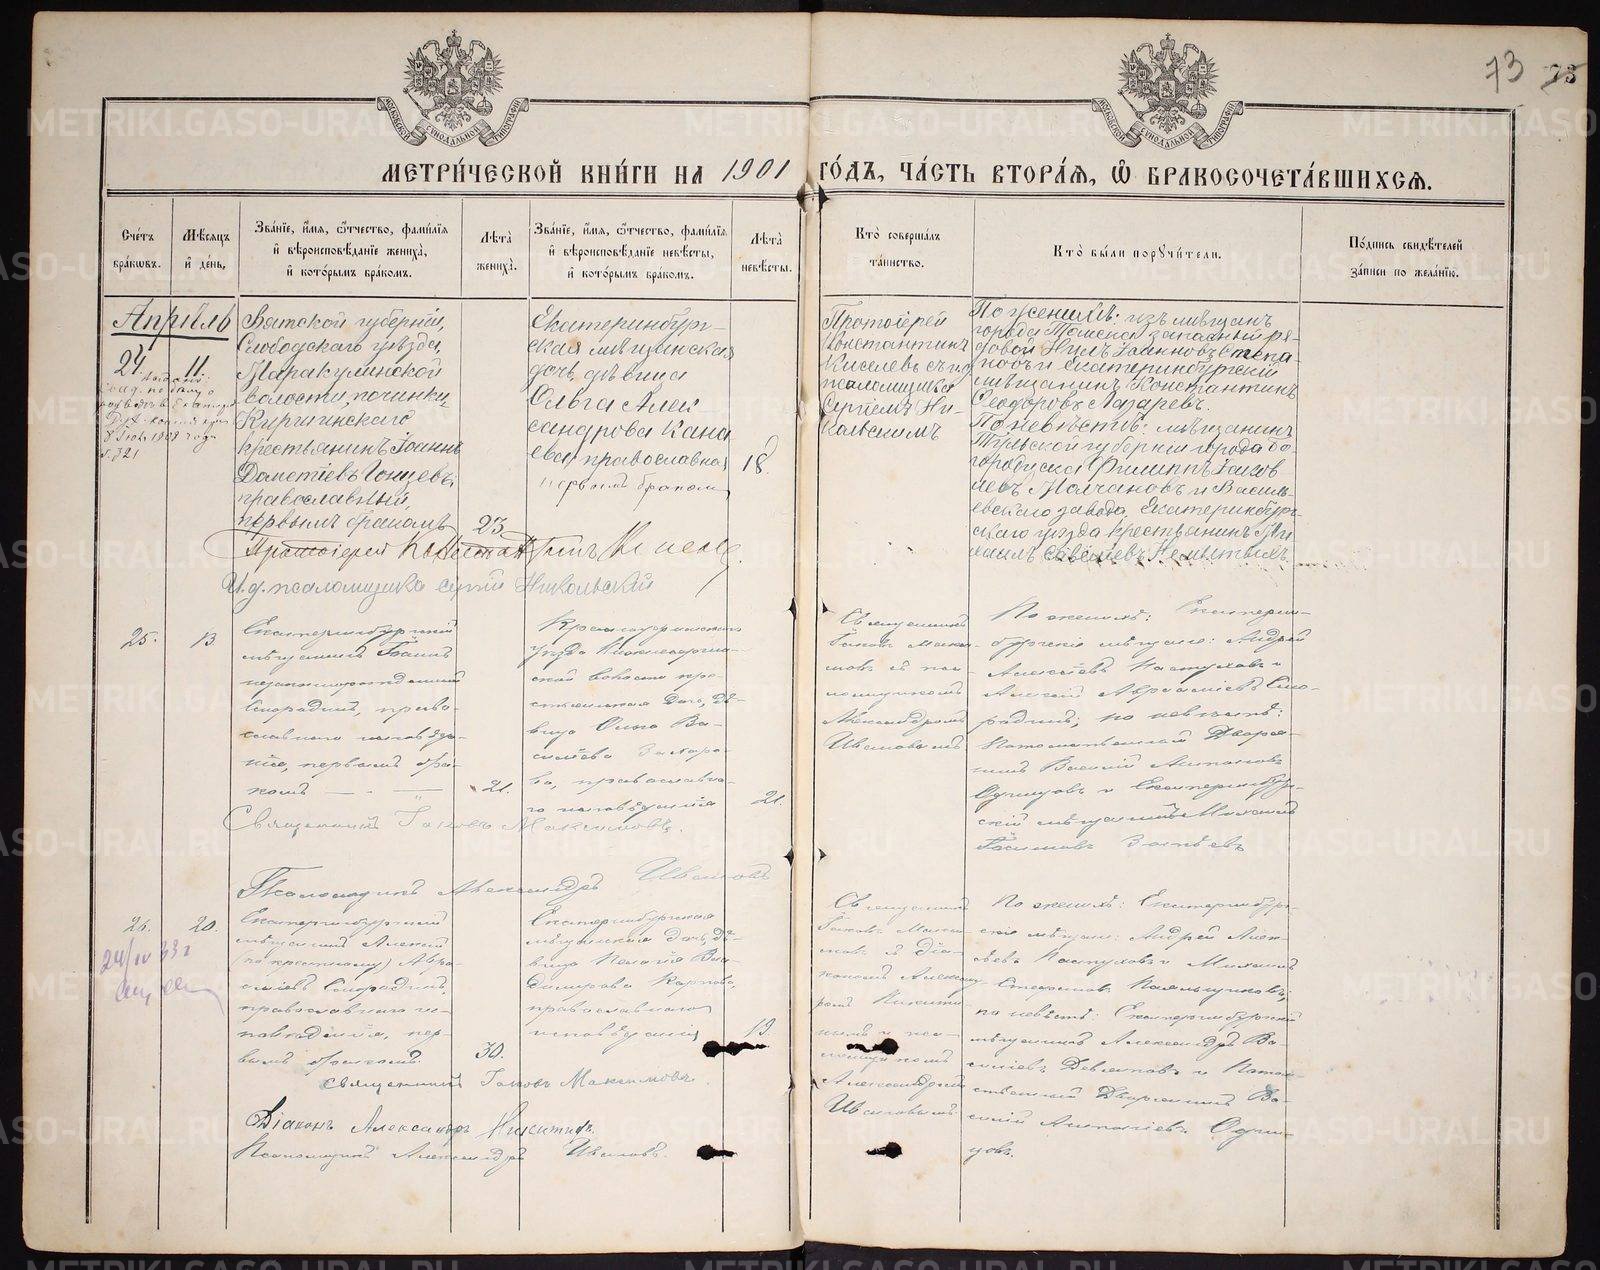 73 73
МЕТРИ́ЧЕСКОЙ КНИ́ГИ НА 1901 ГО́ДЪ, ЧА́СТЬ ВТОРА́Я, Ѽ БРАКОСОЧЕТА́ВШИХСЯ.
Сче́тъ бра́ковъ.
Мѣ́сяцъ и҆ де́нь.
Зва́нїе, и҆́мя, ѻ҆́тчество, фами́лїя
и҆ вѣроисповѣ́данїе жениха̀,
и҆ кото́рымъ бра́комъ.
Лѣта̀ жениха̀.
Зва́нїе, и҆́мя, ѻ҆́тчество, фами́лїя
и҆ вѣроисповѣ́данїе невѣ́сты,
и҆ кото́рымъ бра́комъ.
Лѣта̀ невѣ́сты.
Кто̀ соверша́лъ та́инство.
Кто̀ бы́ли порꙋчи́тели.
По́дпись свидѣ́телей
за́писи по жела́нїю.
Апрѣль
24. 11.
Вятской губерніи,
Слободскаго уѣзда,
Маракулинской
волости, починка
крестьянинъ Іоаннъ
Дометіевъ
православный,
первымъ бракомъ
23.
Екатеринбург-
ская мѣщинская
дочь, дѣвица
Ольга Алек
сандрова Кана
ева православная
первымъ бракомъ
18.
Протоіерей
Константинъ
Киселевъ съ и.д.
псаломщика
Сергіемъ Ни-
кольскимъ
По женихѣ: изъ мѣщанъ
города Томска запасный ря-
довой Нилъ Іоанновъ Степа-
новъ и Екатеринбургскій
мѣщанинъ Константинъ
Ѳеодоровъ Лазаревъ.
По невѣстѣ: мѣщанинъ
Тульской губерніи города Бо-
городицка Филиппъ Іаков
левъ Молчановъ и Василь-
евскаго завода, Екатеринбург-
скаго уѣзда крестьянинъ Ми
хаилъ
Протоіерей Константинъ Киселевъ.
И.д. псаломщика Сергій Никольскій
25. 13
Екатеринбургскій
мѣщанинъ Іоаннъ
незаконнорожденный
Скорадинъ, право-
славнаго исповѣда-
нія, первымъ бра-
комъ
21.
Красноуфимскаго
уѣзда
ской волости кре-
стьянская дочь, дѣ-
вица Ольга Ва-
сильева Захаро-
ва, православна-
го исповѣданія
21.
Священникъ
Іаковъ Макси-
мовъ съ пса-
ломщикомъ
Александромъ
Ивановымъ
По женихѣ: Екатерин-
бургскіе мѣщане: Андрей
Алексѣевъ Пастуховъ и
Алексій Аврааміевъ Ско-
радинъ; по невѣстѣ:
Потомственный Дворя-
нинъ Василій Антоновъ
Одинцовъ и Екатеринбург-
скій мѣщанинъ Михаилъ
Священникъ Іаковъ Максимовъ.
Псаломщикъ Александръ Ивановъ
26. 20.
24/IV 33 г
Екатеринбургскій
мѣщанинъ Алексій
(по крестному) Авра-
аміевъ Скорадинъ,
православнаго ис-
повѣданія, пер-
вымъ бракомъ
30.
Екатеринбургская
мѣщанская дочь, дѣ-
вица Пелагія Вла-
димірова Карпова,
православнаго
исповѣданія
19.
Священникъ
Іаковъ Макси-
мовъ съ Діа-
кономъ Александ-
ромъ Никити-
нымъ и пса-
ломщикомъ
Александромъ
Ивановымъ
По женихѣ: Екатеринбург-
скіе мѣщане: Андрей Алек-
сѣевъ Пастуховъ и Михаилъ
Стефановъ Паяльщиковъ;
по невѣстѣ: Екатеринбургскій
мѣщанинъ Александръ Ва-
сильевъ и Потом-
ственный Дворянинъ Ва-
силій Антоновъ Один-
цовъ.
Священникъ Іаковъ Максимовъ.
Діаконъ Александръ Никитинъ.
Псаломщикъ Александръ Ивановъ.
METRIKI.GASO-URAL.RU